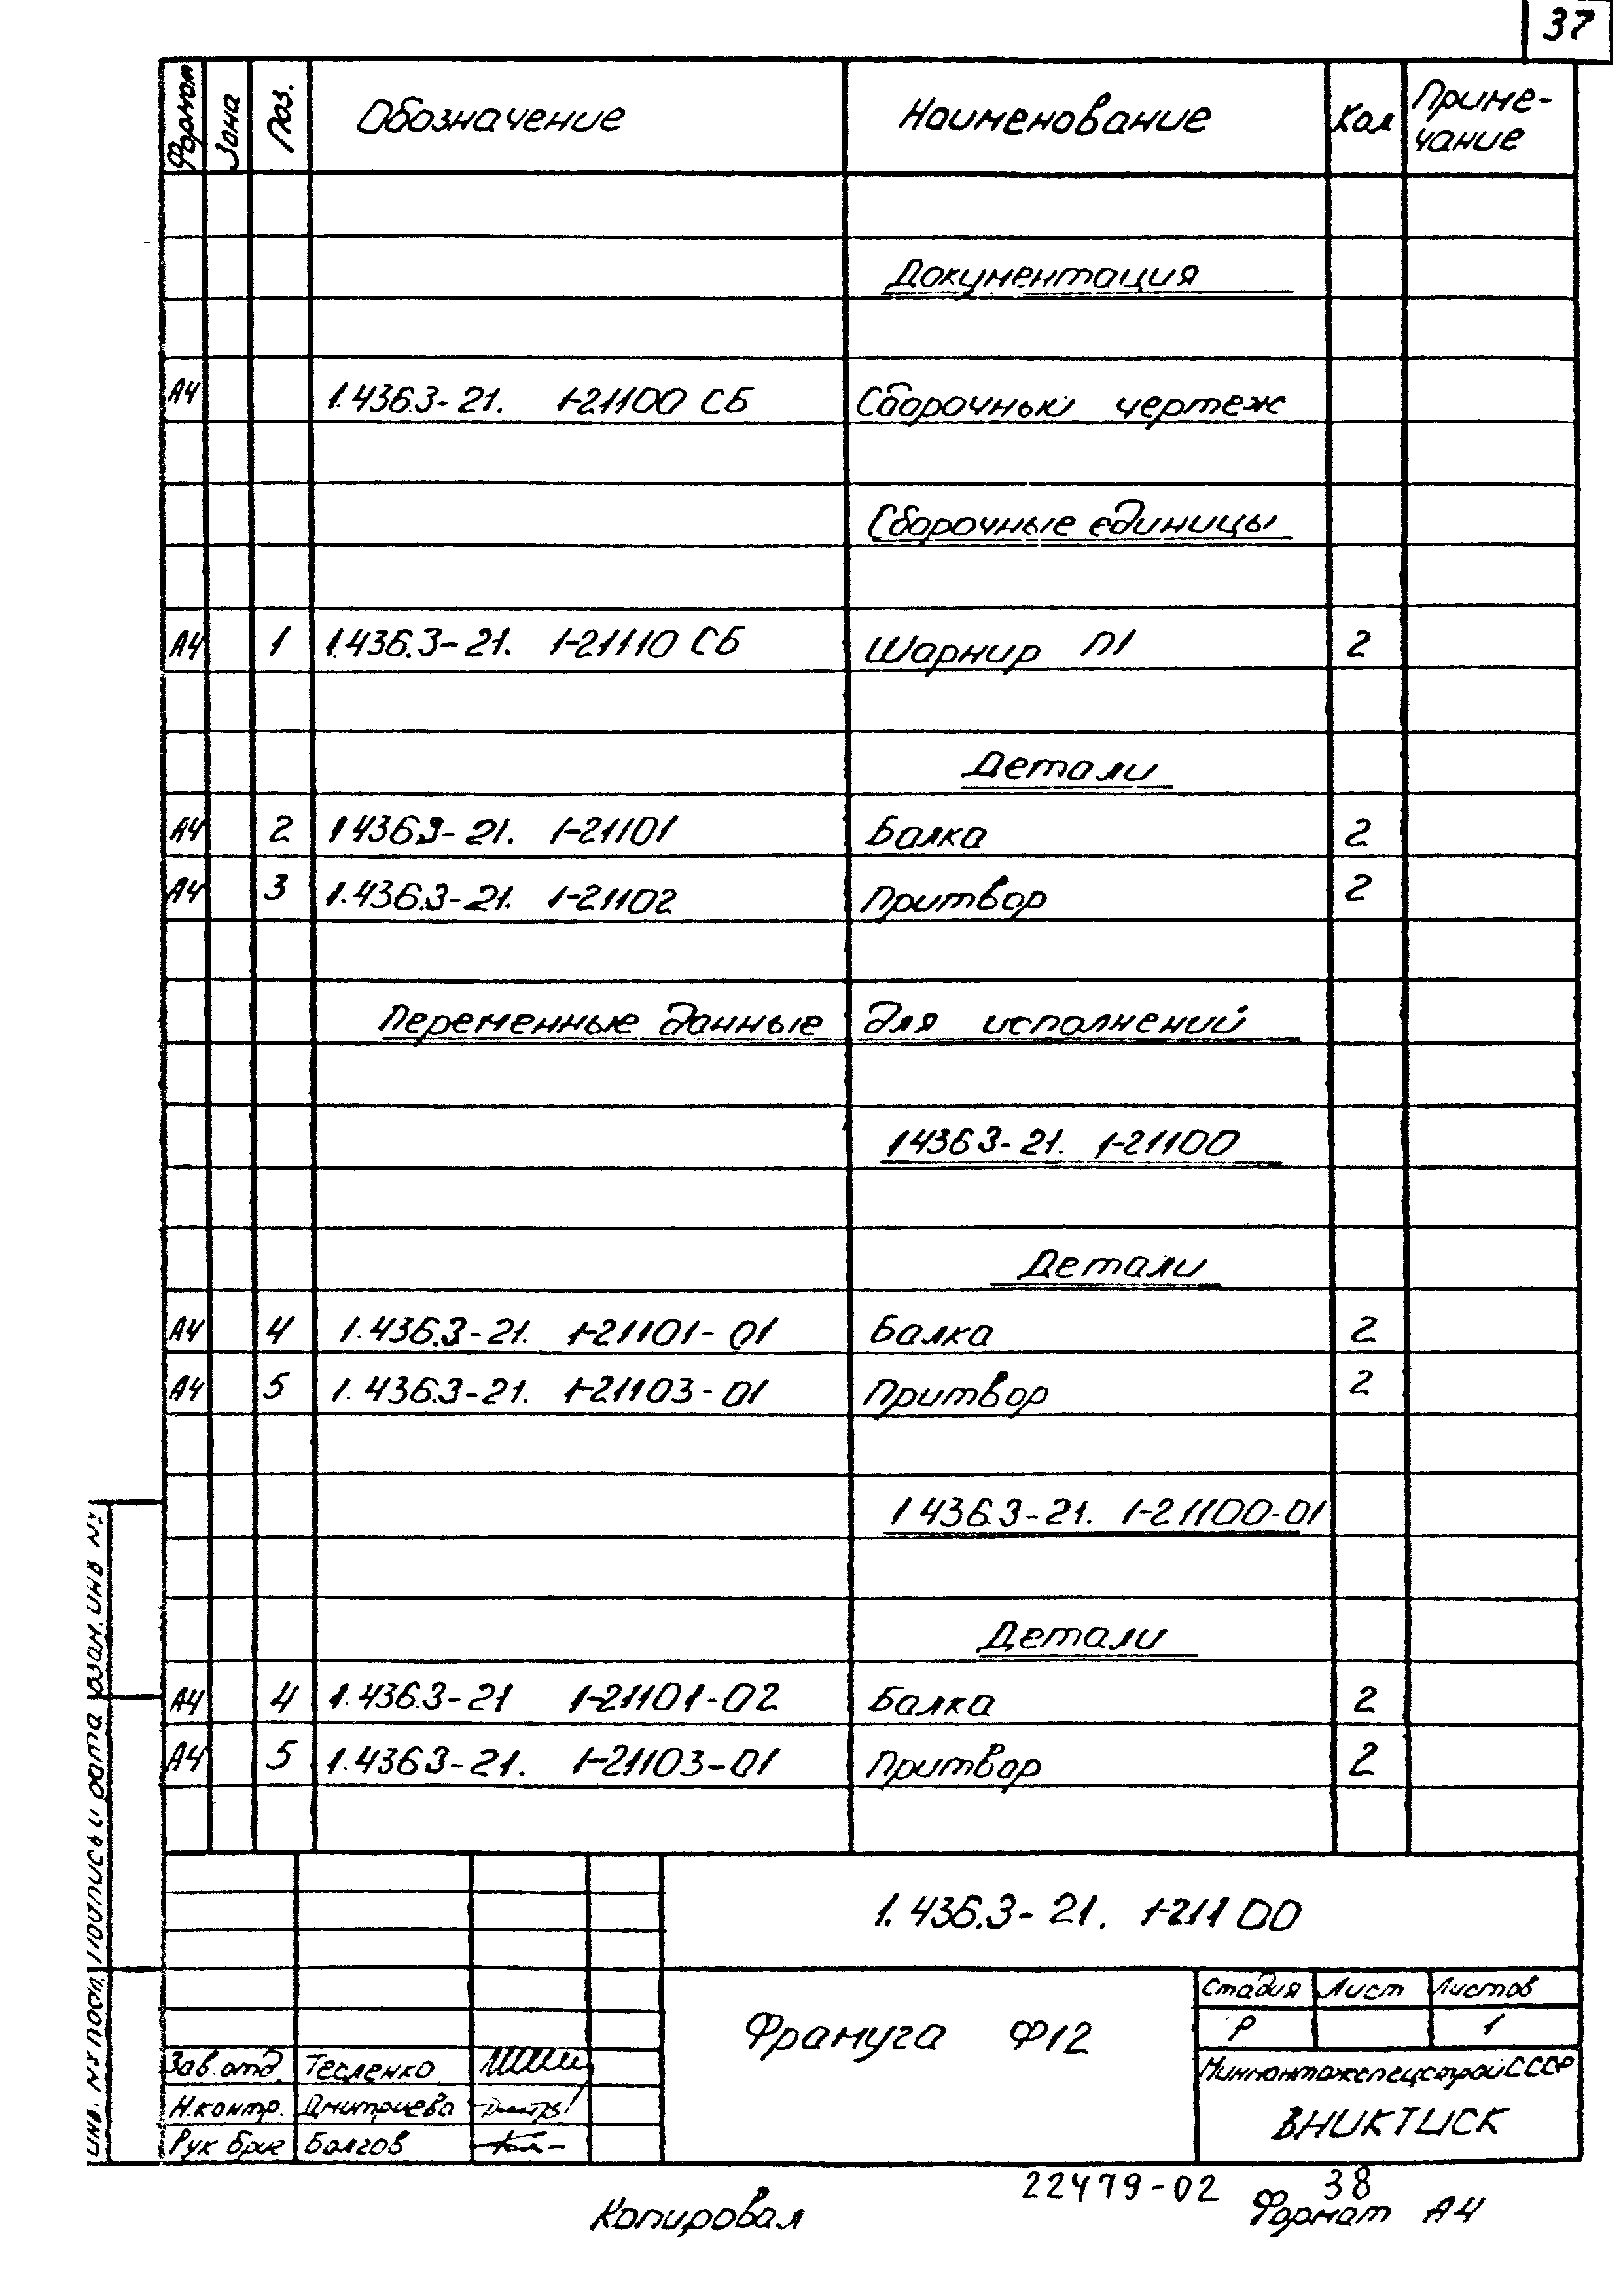 37
Формат Зона Поз. Обозначение Наименование Кол Приме-
чание
Документация
А4 1.436.3-21. 1-21100 СБ Сборочный чертеж
Сборочные единицы
А4 1 1.436.3-21. 1-21110 СБ Шарнир П1 2
Детали
А4 2 1 436.3-21. 1-21101 Балка 2
А4 3 1.436.3-21. 1-21102 Притвор 2
Переменные данные для исполнений
1 436 3-21. 1-21100
Детали
А4 4 1.436.3-21. 1-21101-01 Балка 2
А4 5 1.436.3-21. 1-21103-01 Притвор 2
1 436.3-21. 1-21100-01
Детали
А4 4 1.436.3-21 1-21101-02 Балка 2
А4 5 1.436.3-21. 1-21103-01 Притвор 2
Инв. № посл. Подпись и дата Взам. инв №
1.436.3-21. 1-21100
Фрамуга Ф12
Стадия Лист Листов
Р 1
Минмонтажспецстрой СССР
ВНИКТИСК
Зав. отд. Тесленко
Н.контр. Дмитриева
Рук бриг Балгов
22479-02 38
Копировал Формат А4